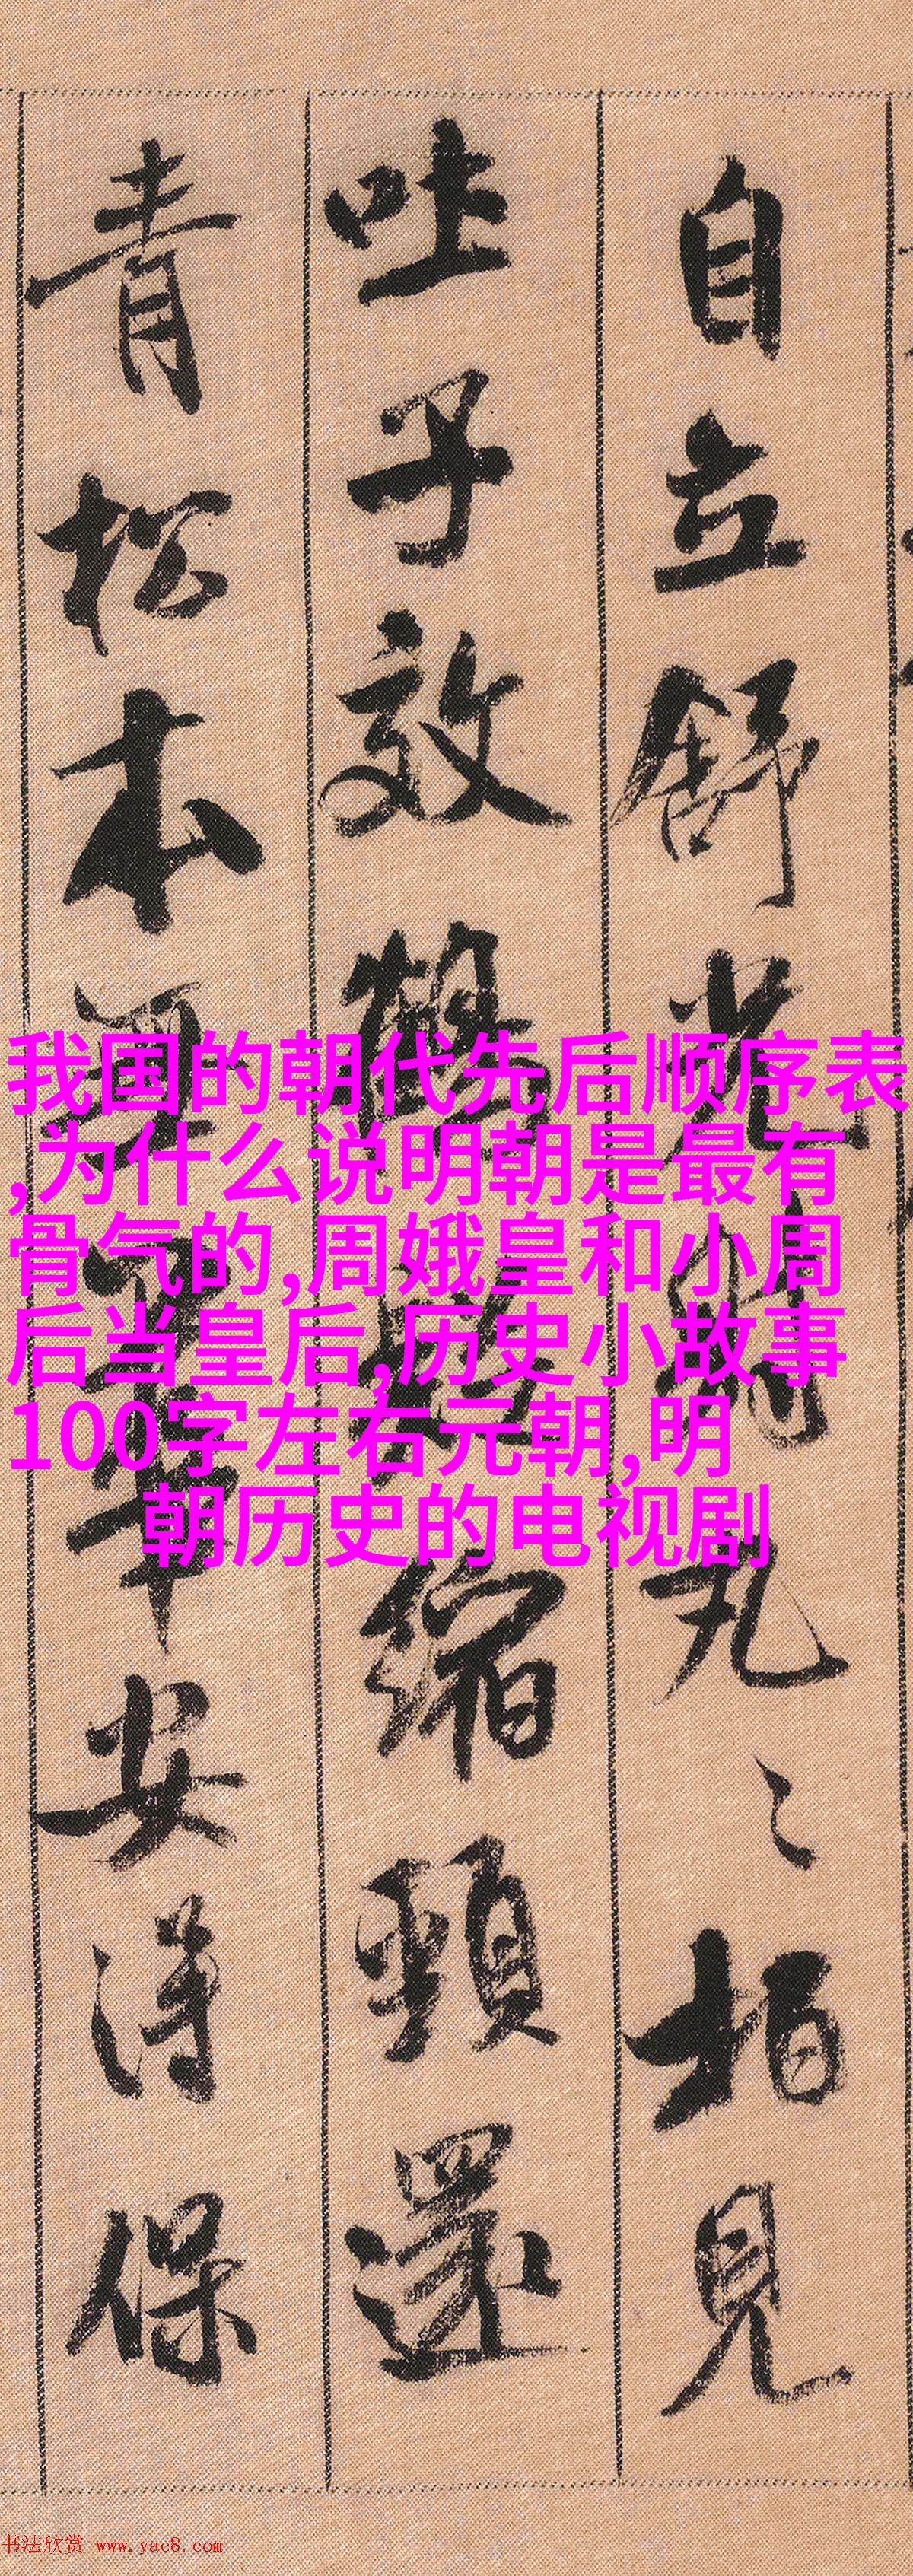 自立舒光射丸〻柏見
吐子效鶴疑縮頸還
青松本無華安得保
我国的朝代先后顺序表
,为什么说明朝是最有
骨气的,周娥皇和小周
后当皇后,历史小故事
100字左右元朝,明
朝历史的电视剧
书法欣赏 www.yac8.com